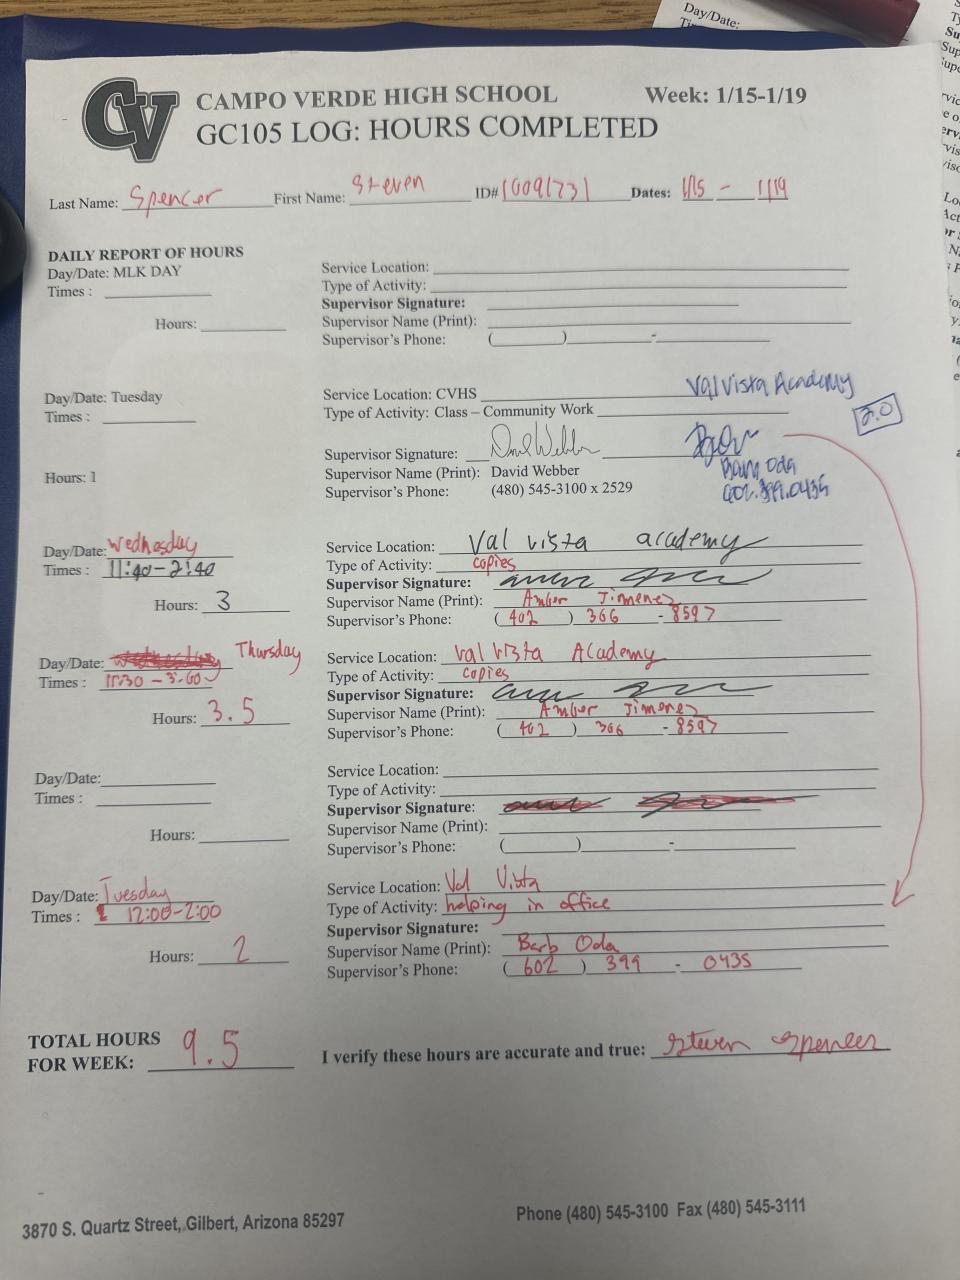 Day/Date:
CV
CAMPO VERDE HIGH SCHOOL Week: 1/15-1/19
GC105 LOG: HOURS COMPLETED
Last Name: Spencer First Name: Steven ID# 10091731 Dates: 1/15 - 1/19
DAILY REPORT OF HOURS
Day/Date: MLK DAY
Times :
Hours:
Service Location:
Type of Activity:
Supervisor Signature:
Supervisor Name (Print):
Supervisor's Phone: ( ) -
Day/Date: Tuesday
Times :
Hours: 1
Service Location: CVHS Val Vista Academy
Type of Activity: Class – Community Work
2.0
Supervisor Signature: David Webber
Supervisor Name (Print): David Webber Barb Oda
Supervisor's Phone: (480) 545-3100 x 2529 602.399.0435
Day/Date: Wednesday
Times : 11:40-2:40
Hours: 3
Service Location: Val vista academy
Type of Activity: copies
Supervisor Signature:
Supervisor Name (Print): Amber Jimenez
Supervisor's Phone: (402) 366 - 8597
Day/Date: Wednesday Thursday
Times : 11:30-3:00
Hours: 3.5
Service Location: Val Vista Academy
Type of Activity: copies
Supervisor Signature:
Supervisor Name (Print): Amber Jimenez
Supervisor's Phone: (402) 366 - 8597
Day/Date:
Times :
Hours:
Service Location:
Type of Activity:
Supervisor Signature:
Supervisor Name (Print):
Supervisor's Phone: ( ) -
Day/Date: Tuesday
Times : 12:00-2:00
Hours: 2
Service Location: Val Vista
Type of Activity: helping in office
Supervisor Signature:
Supervisor Name (Print): Barb Oda
Supervisor's Phone: (602) 399 - 0435
TOTAL HOURS
FOR WEEK: 9.5
I verify these hours are accurate and true: Steven Spencer
3870 S. Quartz Street, Gilbert, Arizona 85297 Phone (480) 545-3100 Fax (480) 545-3111